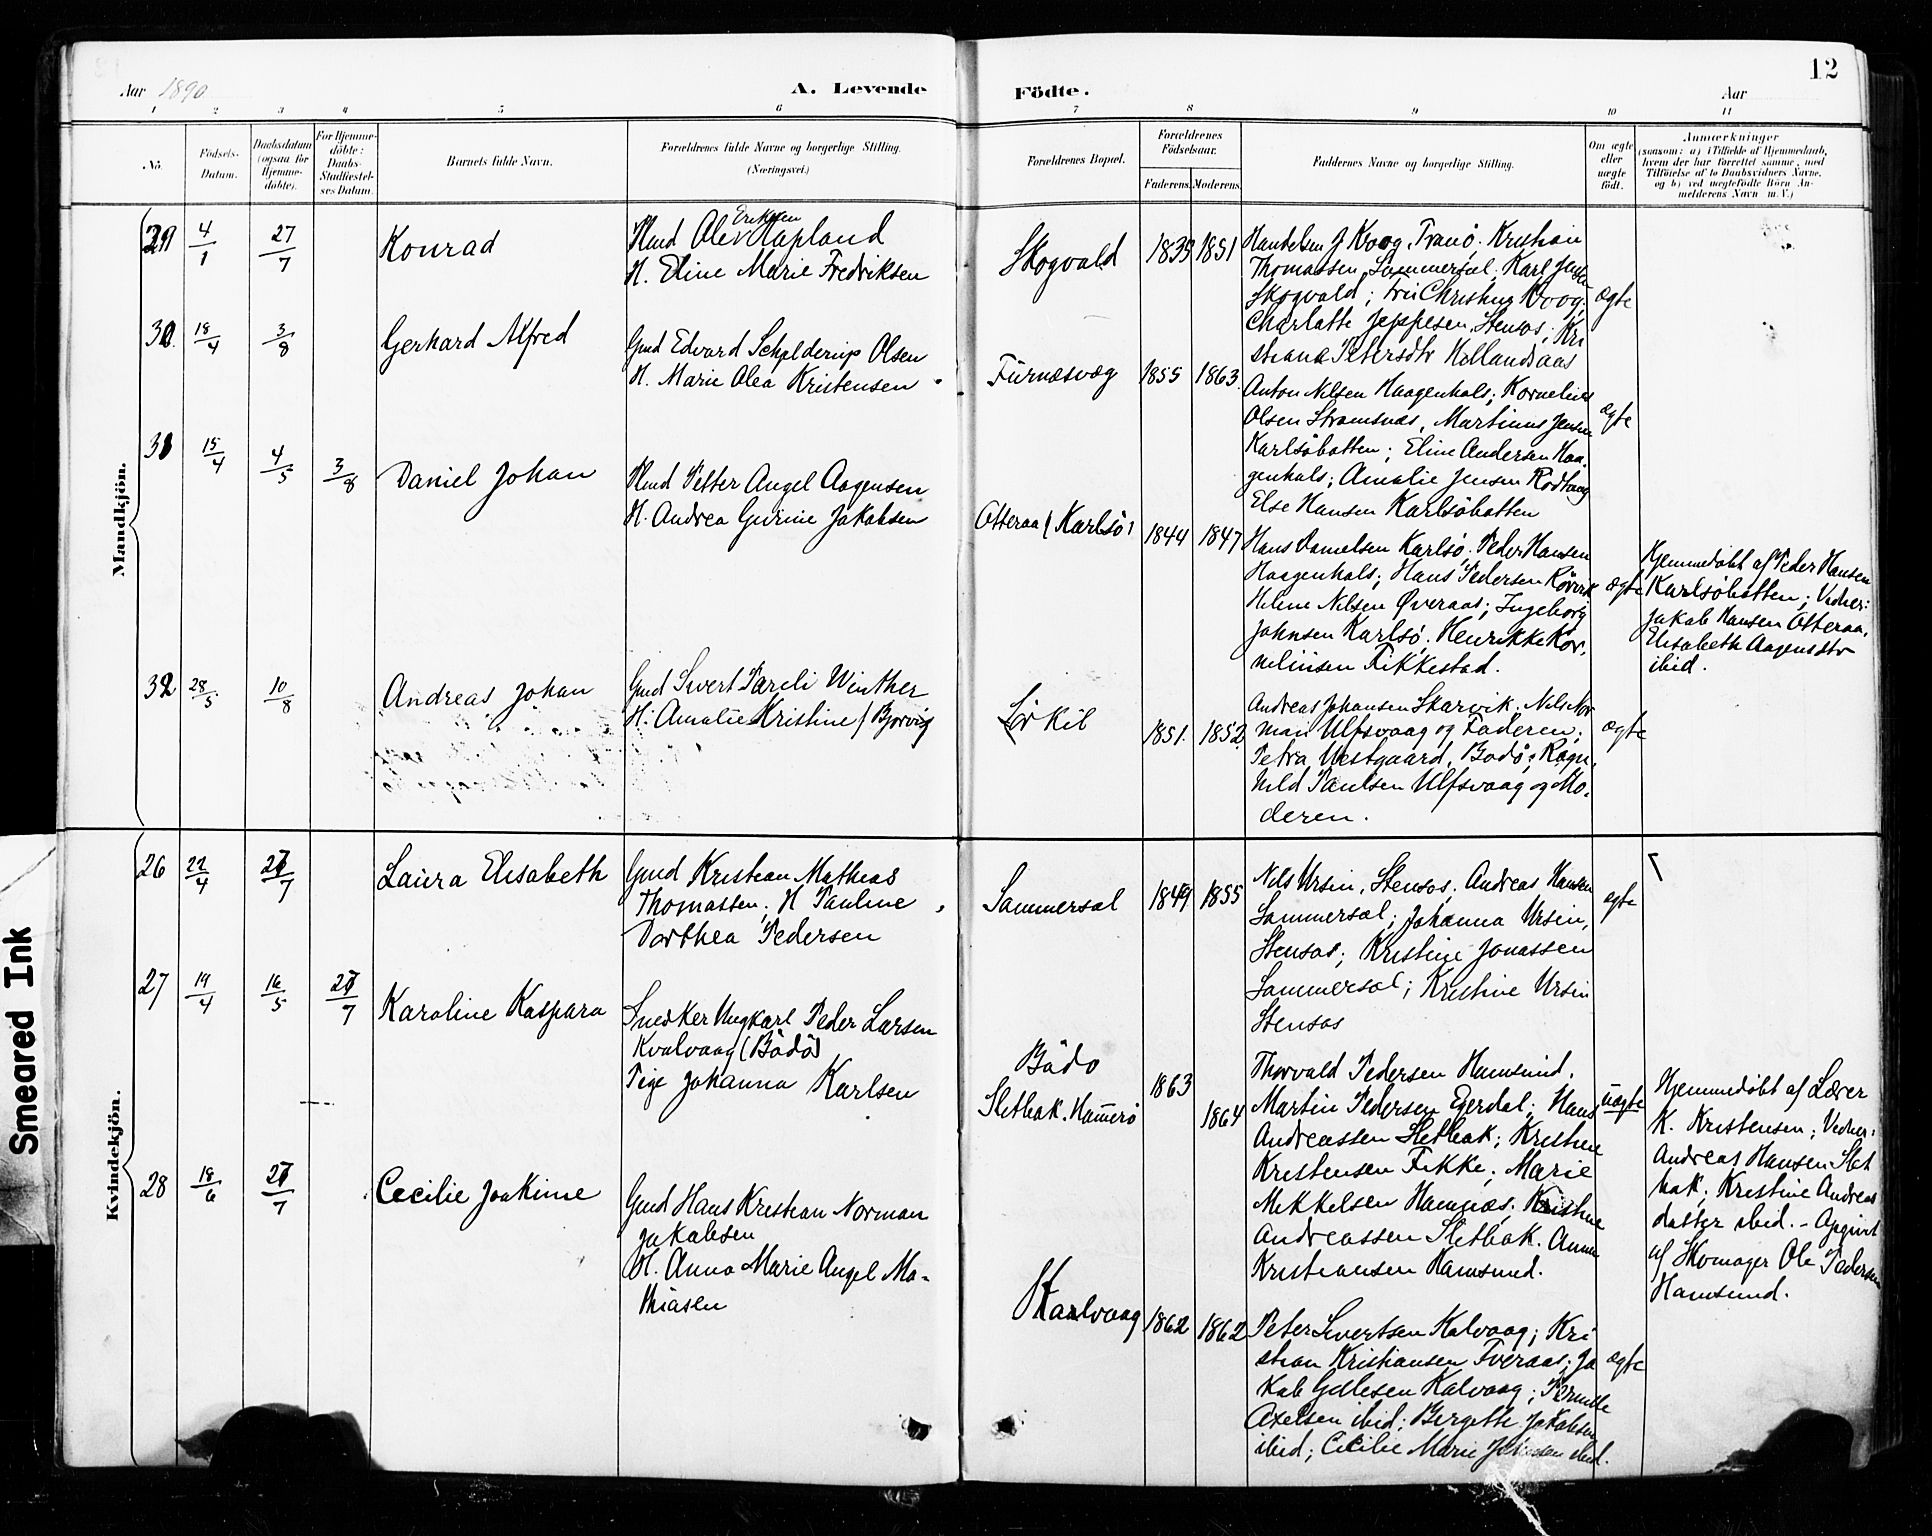 12
Aar 1890
A. Levende
Födte.
Aar
1 2 3 4 5 6 7 8 9 10 11
No.
Födsels-
Datum.
Daabsdatum
(ogsaa for
Hjemme-
döbte).
For Hjemme-
döbte:
Daabs-
Stadfæstel-
ses Datum.
Barnets fulde Navn.
Forældrenes fulde Navne og borgerlige Stilling.
(Næringsvei.)
Forældrenes Bopæl.
Forældrenes
Födselsaar.
Faderens. Moderens.
Faddernes Navne og borgerlige Stilling.
Om ægte
eller
uægte
födt.
Anmærkninger
(saasom: a) i Tilfælde af Hjemmedaab,
hvem der har forrettet samme, med
Tilföielse af to Daabsvidners Navne,
og b) ved uægtefödte Börn An-
melderens Navn m. V.)
Mandkjön.
29 4/1 27/7
Konrad
Hmd Ole Eriksen Hapland
H. Eline Marie Fredriksen
Skogvald
1839 1851
Handelsm J Kroog, Tranö. Kristian
Thomassen Sammersæl. Karl Jensen
Skogvald; Fru Christine Kroog,
Charlotte Jeppesen, Stensos; Kri
stiane Petersdtr Hellandsaas
ægte
30 18/4 3/8
Gerhard Alfred
Gmd Edvard Schelderup Olsen
H. Marie Olea Kristensen
Furnæsvæg
1855 1863
Anton Nilsen Haagenhals; Kornelius
Olsen Stromsnæs, Martinus Jensen
Karlsöbotten; Eline Andersen Haa-
genhals; Amalie Jensen Rodhaug
Else Hansen Karlsöbotten
ægte
31 15/4 4/5 3/8
Daniel Johan
Hmd Petter Angel Aagensen
H. Andrea Gurine Jakobsen
Otteraa (Karlsö)
1844 1847
Hans Danielsen Karlsö. Peder Hansen
Haagenhals; Hans Pedersen Rörvik
Helene Nilsen Øveraas; Ingeborg
Johnsen Karlsö. Henrikke Kor-
neliusen Fikkestad.
ægte
Hjemmedøbt af Peder Hansen
Karlsöbotten; Vidner:
Jakob Hansen Otteraa,
Elisabeth Aagensdtr
ibid.
32 28/5 10/8
Andreas Johan
Gmd Sivert Pareli Winther
H. Amalie Kristine / Bjorvig
Sörkil
1851. 1852
Andreas Johansen Skarvik; Nils Nor
man Ulfsvaag og Faderen;
Petra Vestgaard, Bodö; Ragn-
hild Paulsen Ulfsvaag og Mo-
deren.
ægte
Kvindekjön.
26 22/4 27/7
Laura Elisabeth
Gmd Kristian Mathias
Thomassen; H Pauline
Dorthea Pedersen
Sammersæl
1849 1855
Nils Ursin, Stensos. Andreas Hansen
Sammersæl; Johanna Ursin,
Stensos; Kristine Jonassen
Sammersæl; Kristine Ursin
Stensos
ægte
27 19/4 16/5 27/7
Karoline Kaspara
Snedker Ungkarl Peder Larsen
Kvalvaag (Bödö)
Pige Johanna Karlsen
Bödö
Sletbak. Hamerö
1863
1864
Thorvald Pedersen Hamsund.
Martin Pedersen Egerdal; Hans
Andreassen Sletbak; Kristine
Kristensen Fikke; Marie
Mikkelsen Hamnæs; Kristine
Andreassen Sletbak. Anne
Kristiansen Hamsund.
uægte
Hjemmedøbt af Lærer
K. Kristensen; Vidner:
Andreas Hansen Slet
bak; Kristine Andreas
datter ibid. - Apgivet
af Skomager Ole Pedersen
Hamsund.
28 18/6 27/7
Cecilie Joakime
Gmd Hans Kristian Norman
Jakobsen
H. Anna Marie Angel Ma-
thiasen
Kaalvaag
1862 1862
Peter Sivertsen Kalvaag; Kri
stian Kristiansen Tveraas; Ja
kob Gellesen Kalvaag; Pernille
Axelsen ibid; Bergette Jakobsen
ibid; Cecilie Marie Johnsen ibid.
ægte
Smeared Ink